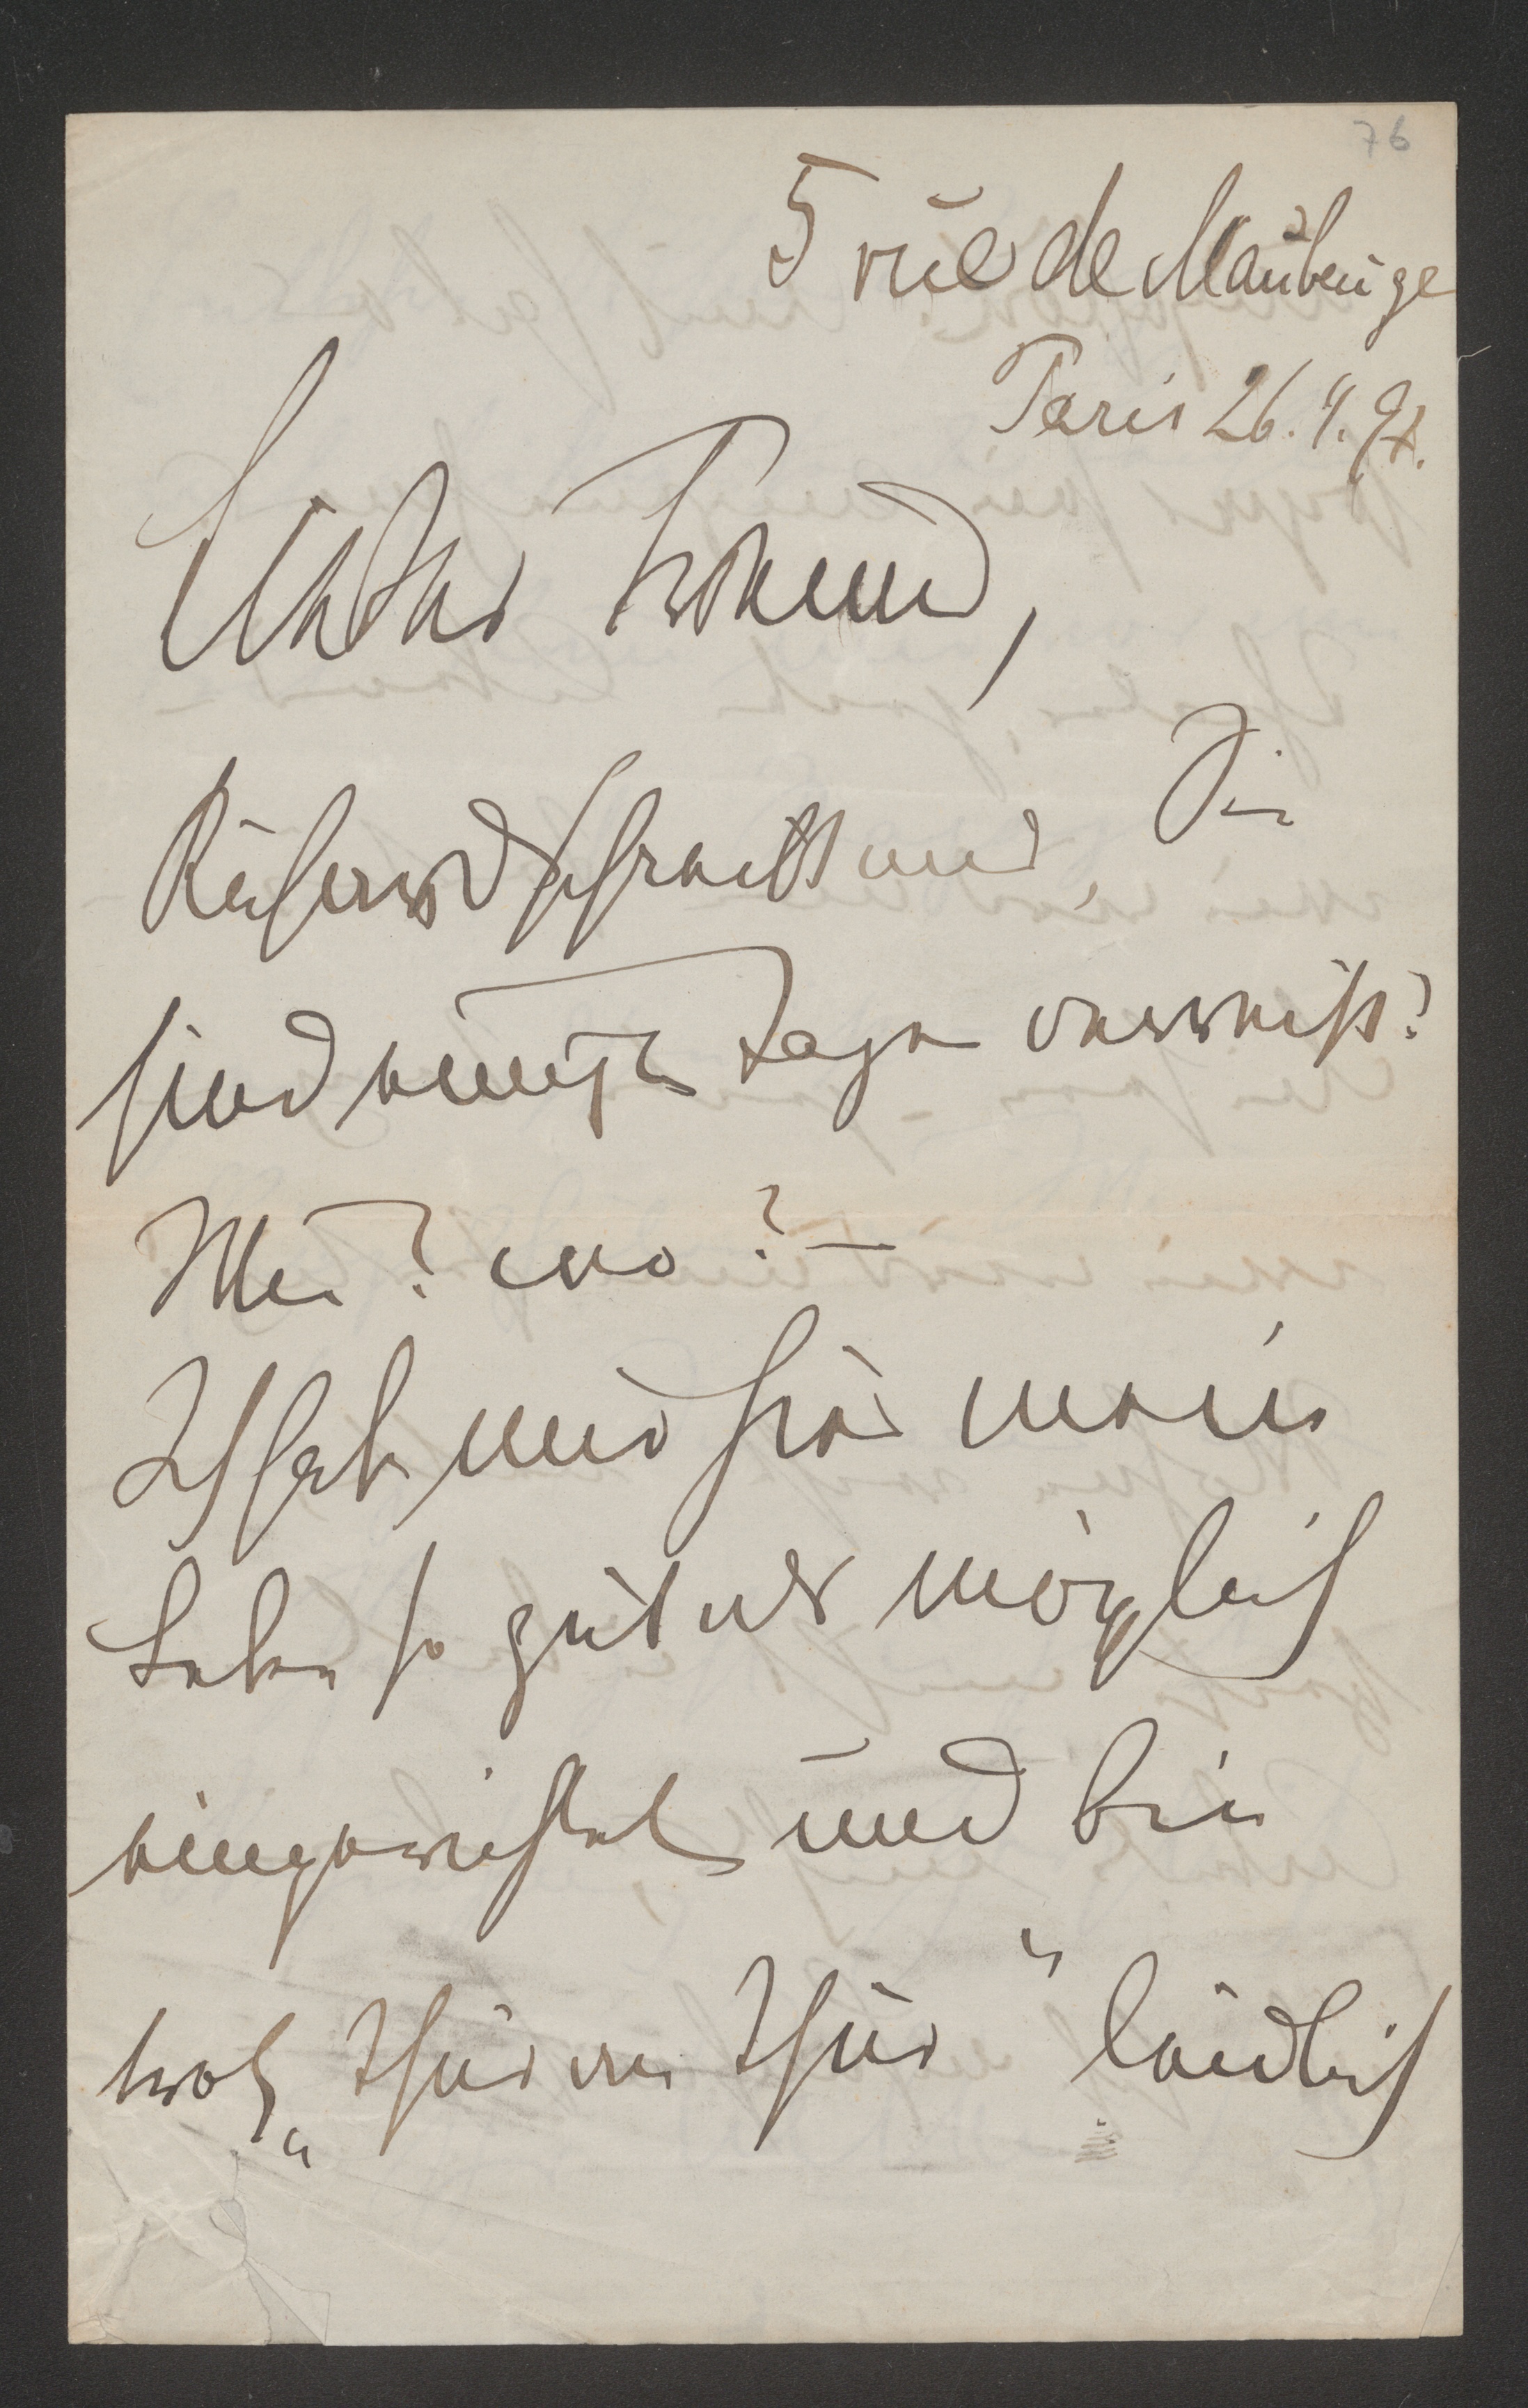 76
5 rue de Maubeuge
Paris 26. 4. 97.
Lieber Freund,
Richard schreibt mir, Sie
sind einige Tage verreist?
Wie? wo? –
Ich habe mir hier mein
Leben so gut als möglich
eingerichtet und bin
trotz „Thür an Thür“ leidlich